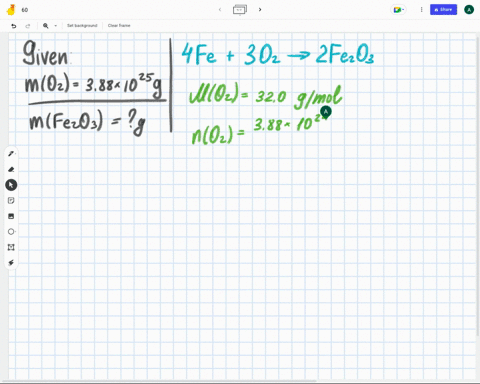 60
Share
A
Set background
Clear frame
Given
m(O₂) = 3.88 × 10²⁵ g
m(Fe₂O₃) = ? g
4Fe + 3O₂ → 2Fe₂O₃
M(O₂) = 32.0 g/mol
n(O₂) = 3.88 × 10²
A